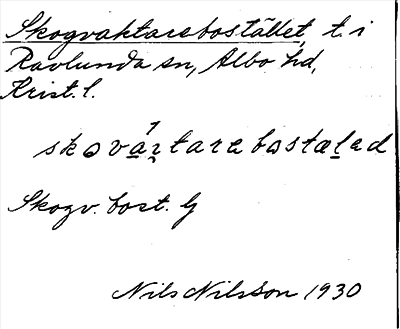 Skogvaktarebostället, t. i
Ravlunda sn, Albo hd,
Krist. l.
skovaktarebostæled
Skogv. bost. G
Nils Nilsson 1930